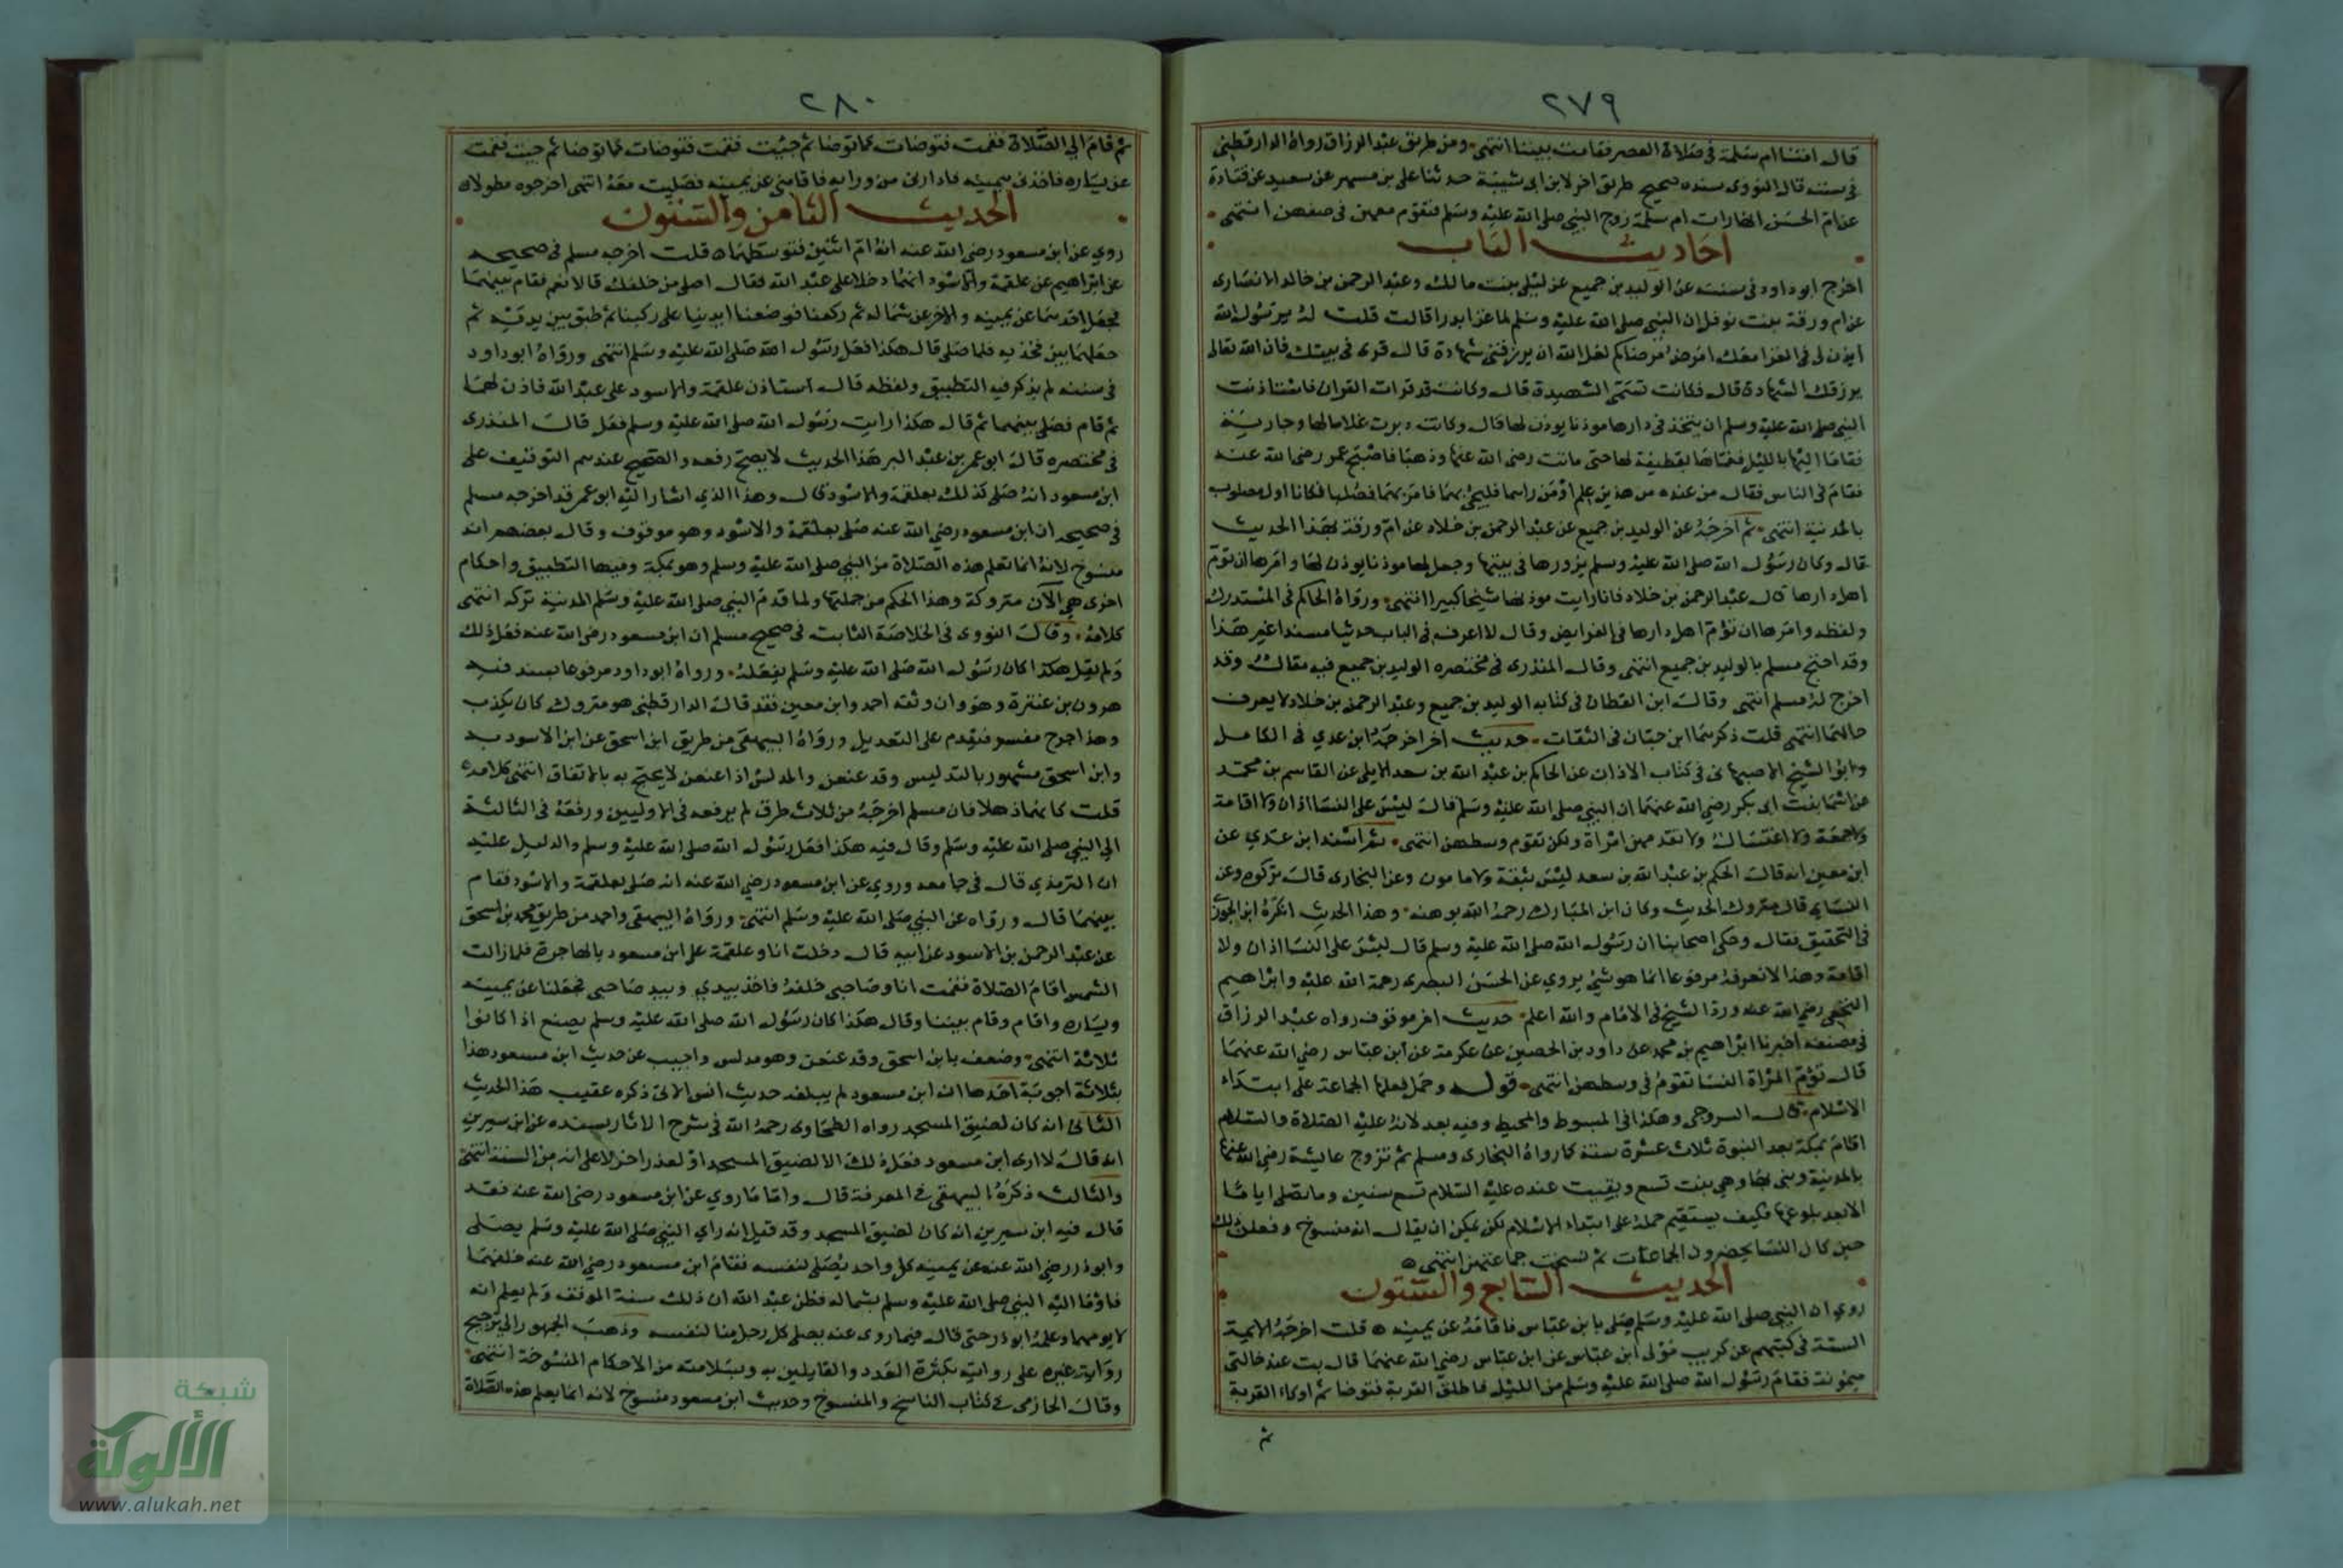 ٢٧٩
قال امتنا ام سلمة في صلاة العصر فقامت بيننا انتهى ومن طريق عبد الرزاق رواه الدارقطني
في سننه قال النووي سنده صحيح طريق اخر لابن ابي شيبة حدثنا علي بن مسهر عن سعيد عن قتادة
عن ام الحسن انها رات ام سلمة زوج النبي صلى الله عليه وسلم فتقوم معهن في صفهن انتهى
احاديث الباب
اخرج ابو داود في سننه عن الوليد بن جميع عن ليلى بنت مالك وعبد الرحمن بن خالد الانصاري
عن ام ورقة بنت نوفل ان النبي صلى الله عليه وسلم لما غزا بدرا قالت قلت له يا رسول الله
ايذن لي في الغزا معك امرض مرضاكم لعل الله ان يرزقني شهادة قال قري في بيتك فان الله تعالى
يرزقك الشهادة قال فكانت تسمى الشهيدة قال وكانت قد قرات القران فاستاذنت
النبي صلى الله عليه وسلم ان يتخذ في دارها موذنا يوذن لها قال وكانت دبرت غلاما لها وجارية
فقاما اليها بالليل فغماها بقطيفة لها حتى ماتت رضي الله عنها وذهبا فاصبح عمر رضي الله عنه
فقام في الناس فقال من عنده من هذين علم او من راهما فليجئ بهما فامر بهما فصلبا فكانا اول مصلوب
بالمدينة انتهى ثم اخرجه عن الوليد بن جميع عن عبد الرحمن بن خلاد عن ام ورقة بهذا الحديث
قال وكان رسول الله صلى الله عليه وسلم يزورها في بيتها وجعل لها موذنا يوذن لها وامرها ان توم
اهل دارها قال عبد الرحمن بن خلاد فانا رايت موذنها شيخا كبيرا انتهى ورواه الحاكم في المستدرك
ولفظه وامرها ان تؤم اهل دارها في الفرايض وقال لا اعرف في الباب حديثا مسندا غير هذا
وقد احتج مسلم بالوليد بن جميع انتهى وقال المنذري في مختصره الوليد بن جميع فيه مقال وقد
اخرج له مسلم انتهى وقال ابن القطان في كتابه الوليد بن جميع وعبد الرحمن بن خلاد لا يعرف
حالهما انتهى قلت ذكرهما ابن حبان في الثقات حديث اخر اخرجه ابن عدي في الكامل
وابو الشيخ الاصبهاني في كتاب الاذان عن الحاكم بن عبد الله بن سعد الايلي عن القاسم بن محمد
عن اسما بنت ابي بكر رضي الله عنهما ان النبي صلى الله عليه وسلم قال ليس على النسا اذان ولا اقامة
ولا جمعة ولا اغتسال ولا تقدمهن امراة ولكن تقوم وسطهن انتهى ثم اسند ابن عدي عن
ابن معين انه قال الحكم بن عبد الله بن سعد ليس بثقة ولا مامون وعن البخاري قال تركوه وعن
النسايي قال متروك الحديث وكان ابن المبارك رحمه الله يوهنه وهذا الحديث انكره ابن الجوزي
في التحقيق فقال وحكى اصحابنا ان رسول الله صلى الله عليه وسلم قال ليس على النسا اذان ولا
اقامة وهذا لا نعرفه مرفوعا انما هو شيء يروي عن الحسن البصري رحمة الله عليه وابراهيم
النخعي رضي الله عنه ورد الشيخ في الامام والله اعلم حديث اخر موقوف رواه عبد الرزاق
في مصنفه اخبرنا ابراهيم بن محمد عن داود بن الحصين عن عكرمة عن ابن عباس رضي الله عنهما
قال تؤم المراة النسا تقوم في وسطهن انتهى قوله وحمل فعلها الجماعة على ابتداء
الاسلام قال السروجي وهكذا في المبسوط والمحيط وفيه بعد لانه عليه الصلاة والسلام
اقام بمكة بعد النبوة ثلاث عشرة سنة كما رواه البخاري ومسلم ثم تزوج عايشة رضي الله عنها
بالمدينة وبنى بها وهي بنت تسع وبقيت عنده عليه السلام تسع سنين وما تصلي اياما
الا بعد بلوغها فكيف يستقيم حمله على ابتداء الاسلام لكن يمكن ان يقال انه منسوخ وفعلن ذلك
حين كان النسا يحضرون الجماعات ثم نسخت جماعتهن انتهى
الحديث السابع والستون
روي ان النبي صلى الله عليه وسلم صلى بابن عباس فاقامه عن يمينه قلت اخرجه الايمة
الستة في كتبهم عن كريب مولى ابن عباس عن ابن عباس رضي الله عنهما قال بت عند خالتي
ميمونة فقام رسول الله صلى الله عليه وسلم من الليل فاطلق القربة فتوضا ثم اوكاء القربة
ثم
٢٨٠
ثم قام الى الصلاة فقمت فتوضات كما توضا ثم جيت فقمت فتوضات كما توضا ثم جيت فقمت
عن يساره فاخذني بيمينه فادارني من ورايه فاقامني عن يمينه فصليت معه انتهى اخرجوه مطولا
الحديث الثامن والستون
روي عن ابن مسعود رضي الله عنه انه ام اثنين فتوسطهما قلت اخرجه مسلم في صحيحه
عن ابراهيم عن علقمة والاسود انهما دخلا على عبد الله فقال اصلى من خلفك قالا نعم فقام بينهما
فجعل احدهما عن يمينه والاخر عن شماله ثم ركعنا فوضعنا ايدينا على ركبنا ثم طبق بين يديه ثم
جعلهما بين فخذيه فلما صلى قال هكذا فعل رسول الله صلى الله عليه وسلم انتهى ورواه ابو داود
في سننه لم يذكر فيه التطبيق ولفظه قال استاذن علقمة والاسود على عبد الله فاذن لهما
ثم قام فصلى بينهما ثم قال هكذا رايت رسول الله صلى الله عليه وسلم فعل قال المنذري
في مختصره قال ابو عمر بن عبد البر هذا الحديث لا يصح رفعه والصحيح عندهم التوقيف على
ابن مسعود انه صلى كذلك بعلقمة والاسود قال وهذا الذي اشار اليه ابو عمر قد اخرجه مسلم
في صحيحه ان ابن مسعود رضي الله عنه صلى بعلقمة والاسود وهو موقوف وقال بعضهم انه
منسوخ لانه انما تعلم هذه الصلاة من النبي صلى الله عليه وسلم وهو بمكة وفيها التطبيق واحكام
اخرى هي الآن متروكة وهذا الحكم من جملتها ولما قدم النبي صلى الله عليه وسلم المدينة تركه انتهى
كلامه وقال النووي في الخلاصة الثابت في صحيح مسلم ان ابن مسعود رضي الله عنه فعل ذلك
ولم يقل هكذا كان رسول الله صلى الله عليه وسلم يفعله ورواه ابو داود مرفوعا بسند فيه
هرون بن عنترة وهو وان وثقه احمد وابن معين فقد قال الدارقطني هو متروك كان يكذب
وهذا جرح مفسر فيقدم على التعديل ورواه البيهقي من طريق ابن اسحق عن ابن الاسود به
وابن اسحق مشهور بالتدليس وقد عنعن والمدلس اذا عنعن لا يحتج به بالاتفاق انتهى كلامه
قلت كانهما ذهلا فان مسلم اخرجه من ثلاث طرق لم يرفعه في الاوليين ورفعه في الثالثة
الى النبي صلى الله عليه وسلم وقال فيه هكذا فعل رسول الله صلى الله عليه وسلم والدليل عليه
ان الترمذي قال في جامعه وروي عن ابن مسعود رضي الله عنه انه صلى بعلقمة والاسود فقام
بينهما قال ورواه عن النبي صلى الله عليه وسلم انتهى ورواه البيهقي واحمد من طريق محمد بن اسحق
عن عبد الرحمن بن الاسود عن ابيه قال دخلت انا وعلقمة على ابن مسعود بالهاجرة فلما زالت
الشمس اقام الصلاة فقمت انا وصاحبي خلفه فاخذ بيدي وبيد صاحبي فجعلنا عن يمينه
ويساره واقام وقام بيننا وقال هكذا كان رسول الله صلى الله عليه وسلم يصنع اذا كانوا
ثلاثة انتهى وضعف بابن اسحق وقد عنعن وهو مدلس واجيب عن حديث ابن مسعود هذا
بثلاثة اجوبة احدها ان ابن مسعود لم يبلغه حديث انس الاتي ذكره عقيب هذا الحديث
الثاني انه كان لضيق المسجد رواه الطحاوي رحمه الله في شرح الاثار بسنده عن ابن سيرين
انه قال لا ارى ابن مسعود فعل ذلك الا لضيق المسجد او لعذر اخر لا على انه من السنة انتهى
والثالث ذكره البيهقي في المعرفة قال واما ما روي عن ابن مسعود رضي الله عنه فقد
قال فيه ابن سيرين انه كان لضيق المسجد وقد قيل انه راي النبي صلى الله عليه وسلم يصلي
وابو ذر رضي الله عنه عن يمينه كل واحد يصلي لنفسه فقام ابن مسعود رضي الله عنه خلفهما
فاومأ اليه النبي صلى الله عليه وسلم بشماله فظن عبد الله ان ذلك سنة الموقف ولم يعلم انه
لا يومهما وعلمه ابو ذر حتى قال فيما روى عنه يصلي كل رجل منا لنفسه وذهب الجمهور الى ترجيح
رواية غيره على روايته بكثرة العدد والقايلين به وبسلامته من الاحكام المنسوخة انتهى
وقال الحازمي في كتاب الناسخ والمنسوخ وحديث ابن مسعود منسوخ لانه انما يعلم هذه الصلاة
شبكة
الألوكة
www.alukah.net